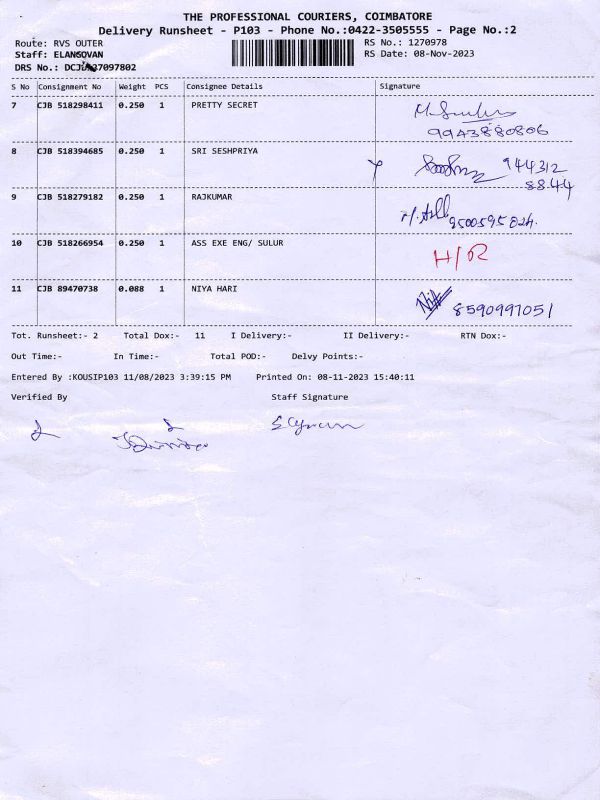 THE PROFESSIONAL COURIERS, COIMBATORE
Delivery Runsheet - P103 - Phone No.:0422-3505555 - Page No.:2
Route: RVS OUTER
RS No.: 1270978
Staff: ELANGOVAN
RS Date: 08-Nov-2023
DRS No.:
S No Consignment No Weight PCS Consignee Details Signature
7 CJB 518298411 0.250 1 PRETTY SECRET
9943880806
8 CJB 518394685 0.250 1 SRI SESHPRIYA
944312
8844
9 CJB 518279182 0.250 1 RAJKUMAR
10 CJB 518266954 0.250 1 ASS EXE ENG/ SULUR H/R
11 CJB 89470738 0.088 1 NIYA HARI
8590997051
Tot. Runsheet:- 2 Total Dox:- 11 I Delivery:- II Delivery:- RTN Dox:-
Out Time:- In Time:- Total POD:- Delvy Points:-
Entered By :KOUSIP103 11/08/2023 3:39:15 PM Printed On: 08-11-2023 15:40:11
Verified By Staff Signature